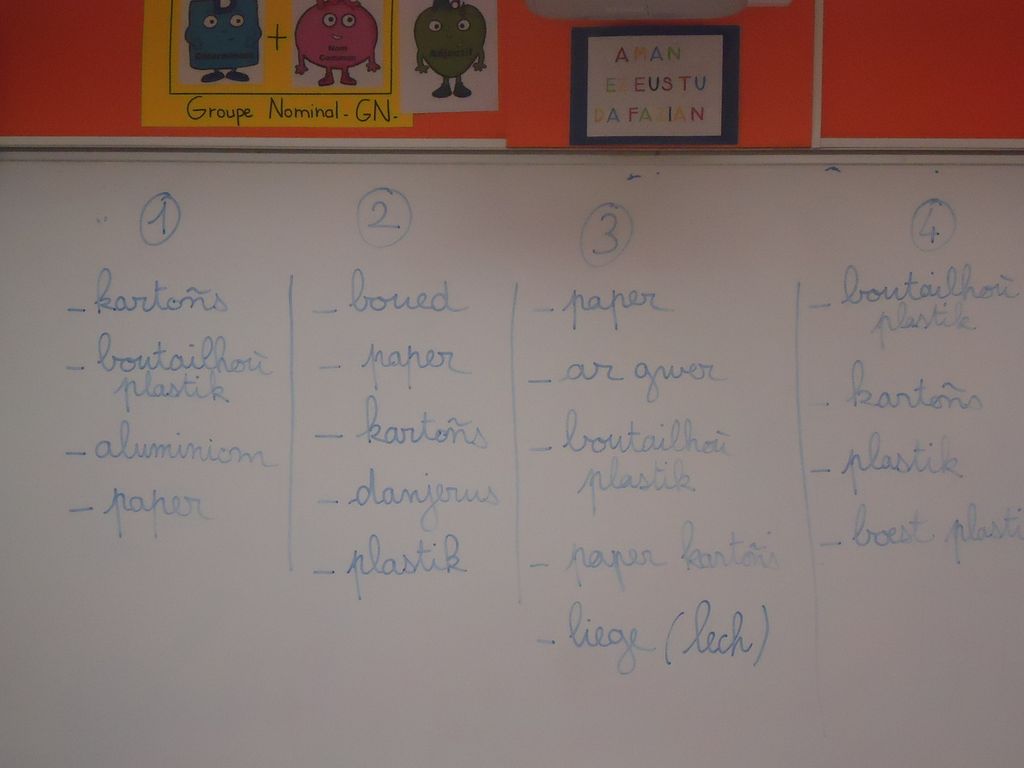 Déterminant
+
Nom
Commun
Adjectif
Groupe Nominal - GN.
AMAN
EZ EUS TU
DA FAZIAN
1
- kartoñs
- boutailhoù
plastik
- aluminiom
- paper
2
- boued
- paper
- kartoñs
- danjerus
- plastik
3
- paper
- ar gwer
- boutailhoù
plastik
- paper kartoñs
- liege (lech)
4
- boutailhoù
plastik
- kartoñs
- plastik
- boest plasti